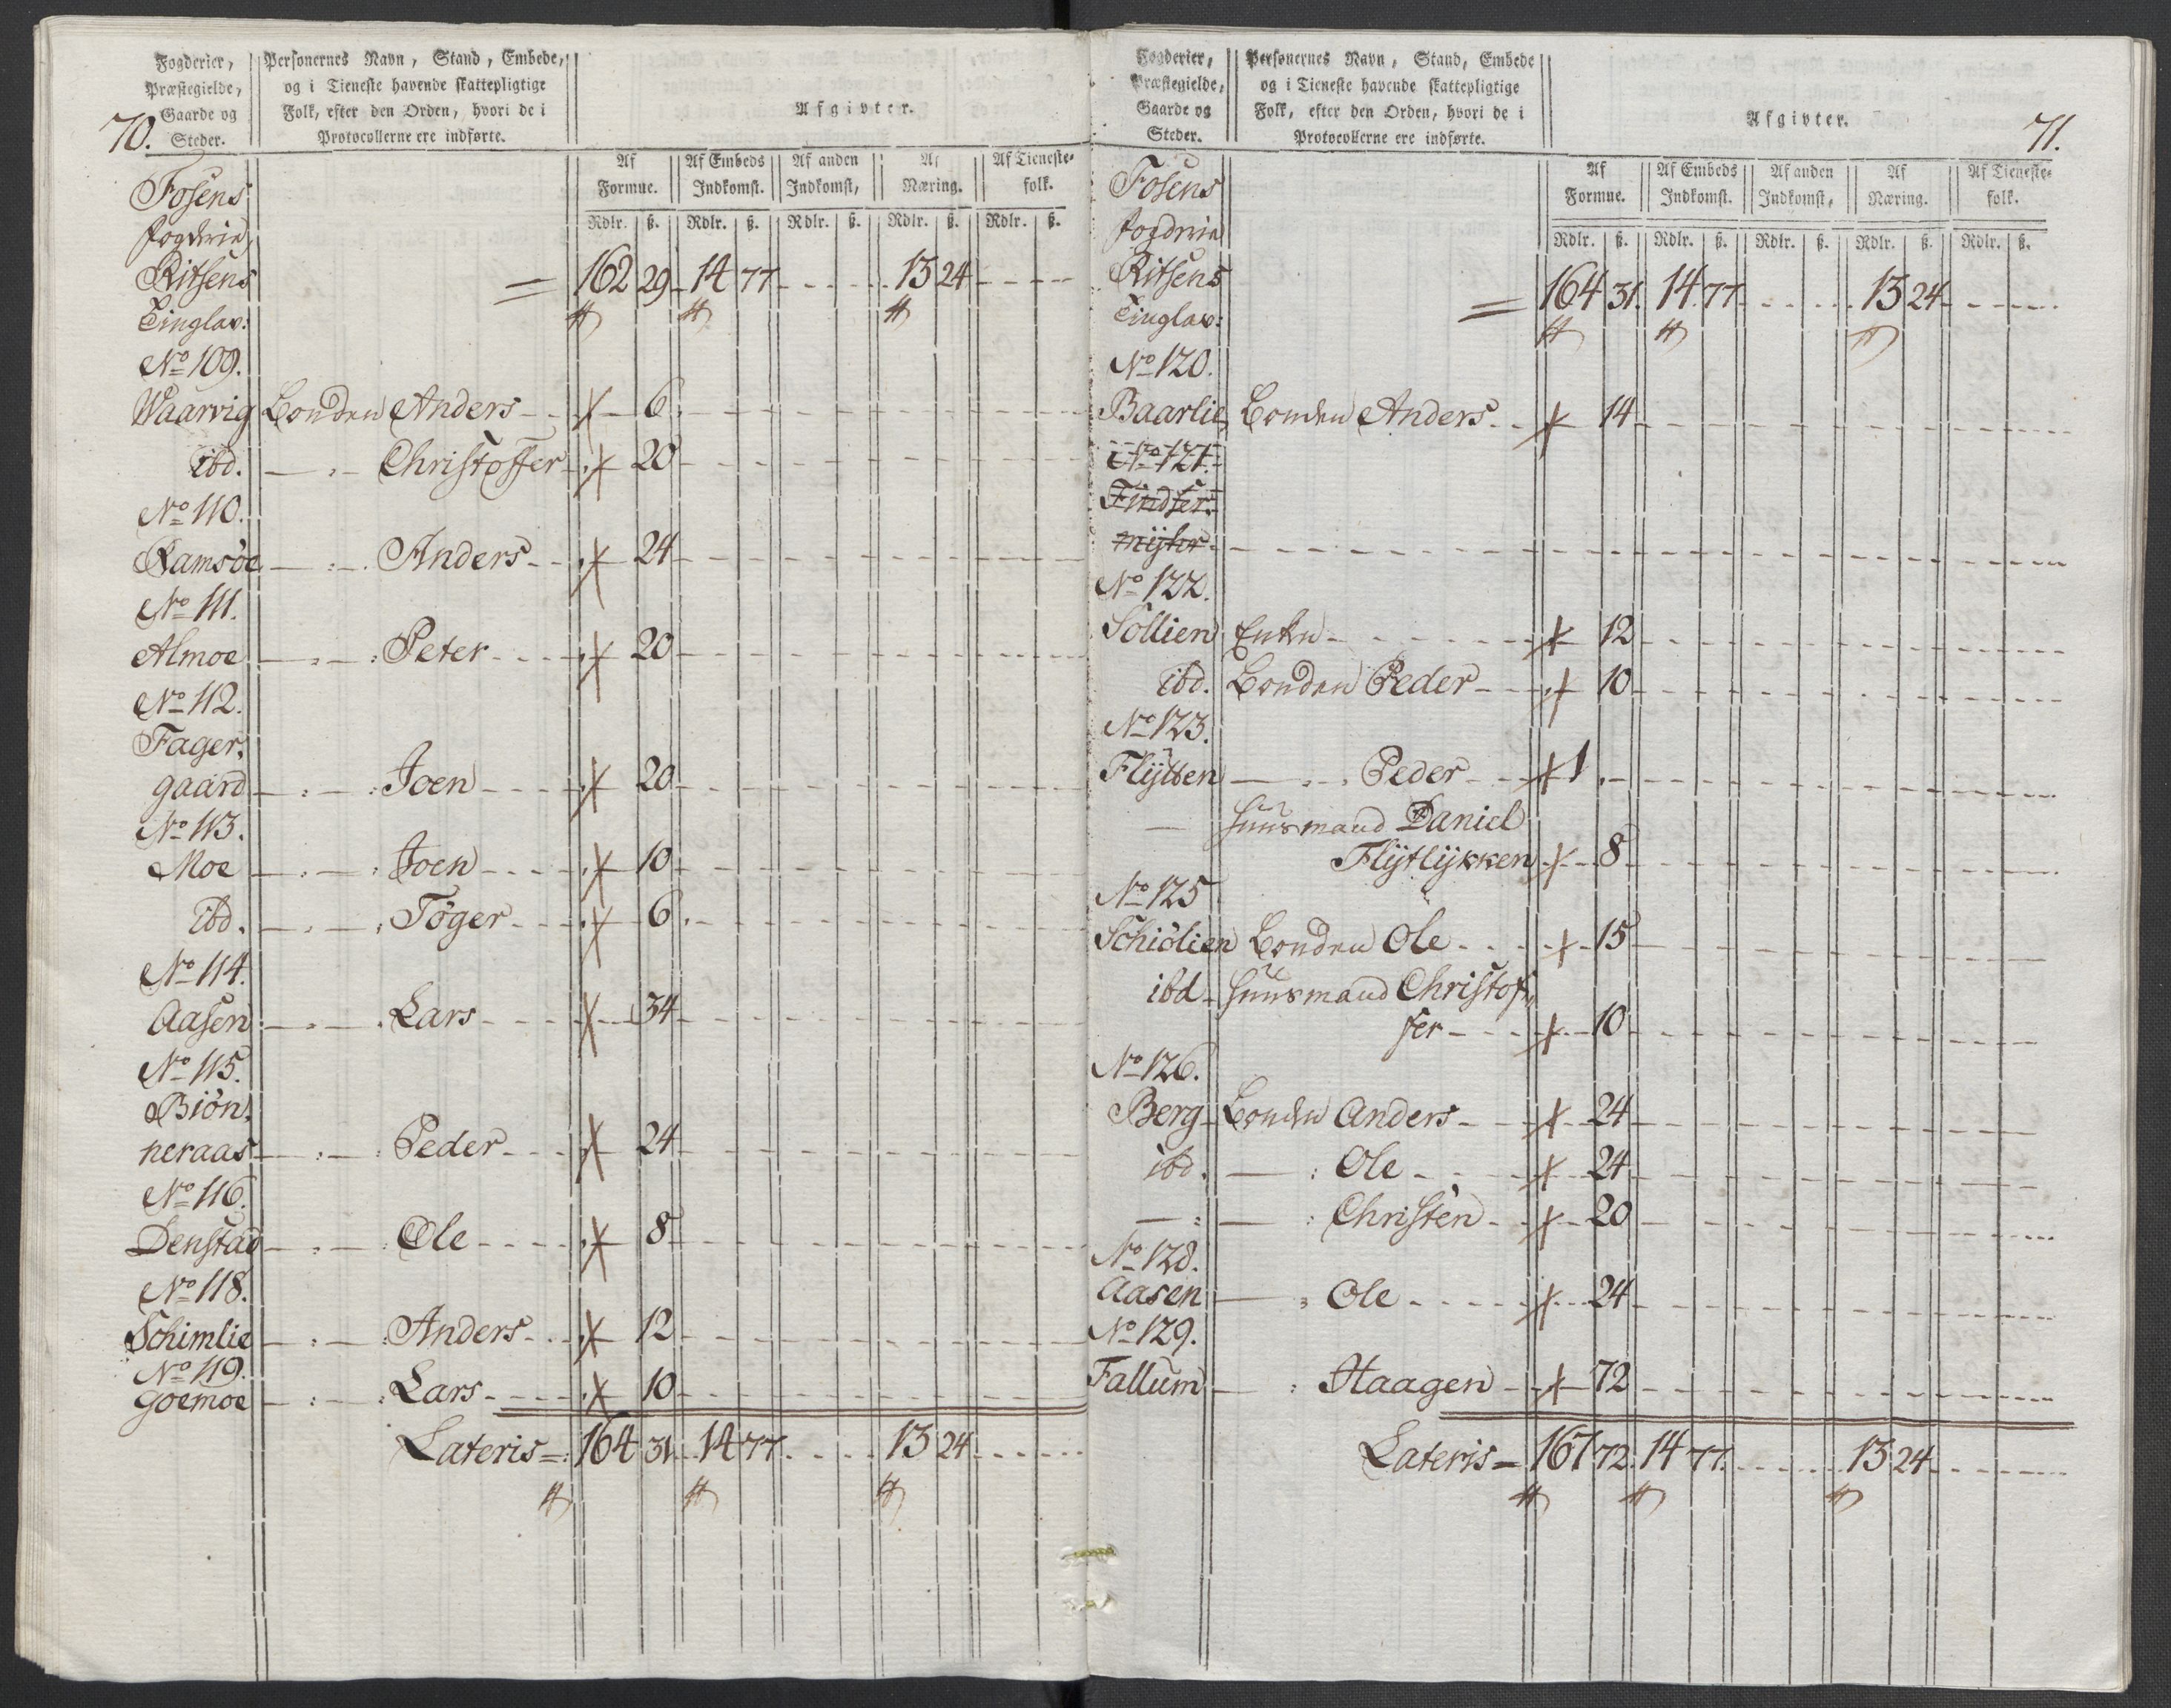 70.
Fogderier,
Præstegielde,
Gaarde og
Steder.
Personernes Navn, Stand, Embede,
og i Tieneste havende skattepligtige
Folk, efter den Orden, hvori de i
Protocollerne ere indførte.
Afgivter.
Af Formue. Af Embeds Indkomst. Af anden Indkomst, Af Næring. Af Tieneste= folk.
Rdlr. ß. Rdlr. ß. Rdlr. ß. Rdlr. ß. Rdlr. ß.
Fosens
fogderie
Ritsens = 162 29 14 77 13 24
Tinglav:
No 109.
Waarvig Bonden Anders 6
ibd. — „ — Christoffer 20
No 110.
Ramsöe — „ — Anders 24
No 111.
Almoe — „ — Peter 20
No 112.
Fager,
gaard — „ — Joen 20
No 113.
Moe — „ — Joen 10
ibd. — „ — Töger 6
No 114.
Aasen — „ — Lars 34
No 115.
Biön,
neraas — „ — Peder 24
No 116.
Denstad — „ — Ole 8
No 118.
Schimlie — „ — Anders 12
No 119.
Goemoe — „ — Lars 10
Lateris = 164 31 14 77 13 24
71.
Fogderier,
Præstegielde,
Gaarde og
Steder.
Personernes Navn, Stand, Embede
og i Tieneste havende skattepligtige
Folk, efter den Orden, hvori de i
Protocollerne ere indførte.
Afgivter.
Af Formue. Af Embeds Indkomst. Af anden Indkomst, Af Næring. Af Tieneste= folk.
Rdlr. ß. Rdlr. ß. Rdlr. ß. Rdlr. ß. Rdlr. ß.
Fosens
fogderie
Ritsens = 164 31. 14 77 13 24
Tinglav:
No 120.
Baarlie, Bonden Anders 14
No 121.
Findser,
mÿhr
No 122.
Söllien Enken 12
ibd. Bonden Peder 10
No 123.
Flÿtten — „ Peder 1
— Huusmand Daniel
Flÿtlÿkken 8
No 125
Schiölien Bonden Ole 15
ibd Huusmand Christof,
fer 10
No 126.
Berg Bonden Anders 24
ibd. — : Ole 24
— : — : Christen 20
No 128.
Aasen — „ Ole 24
No 129.
Fallum — : Haagen 72
Lateris = 167 72. 14 77. 13 24